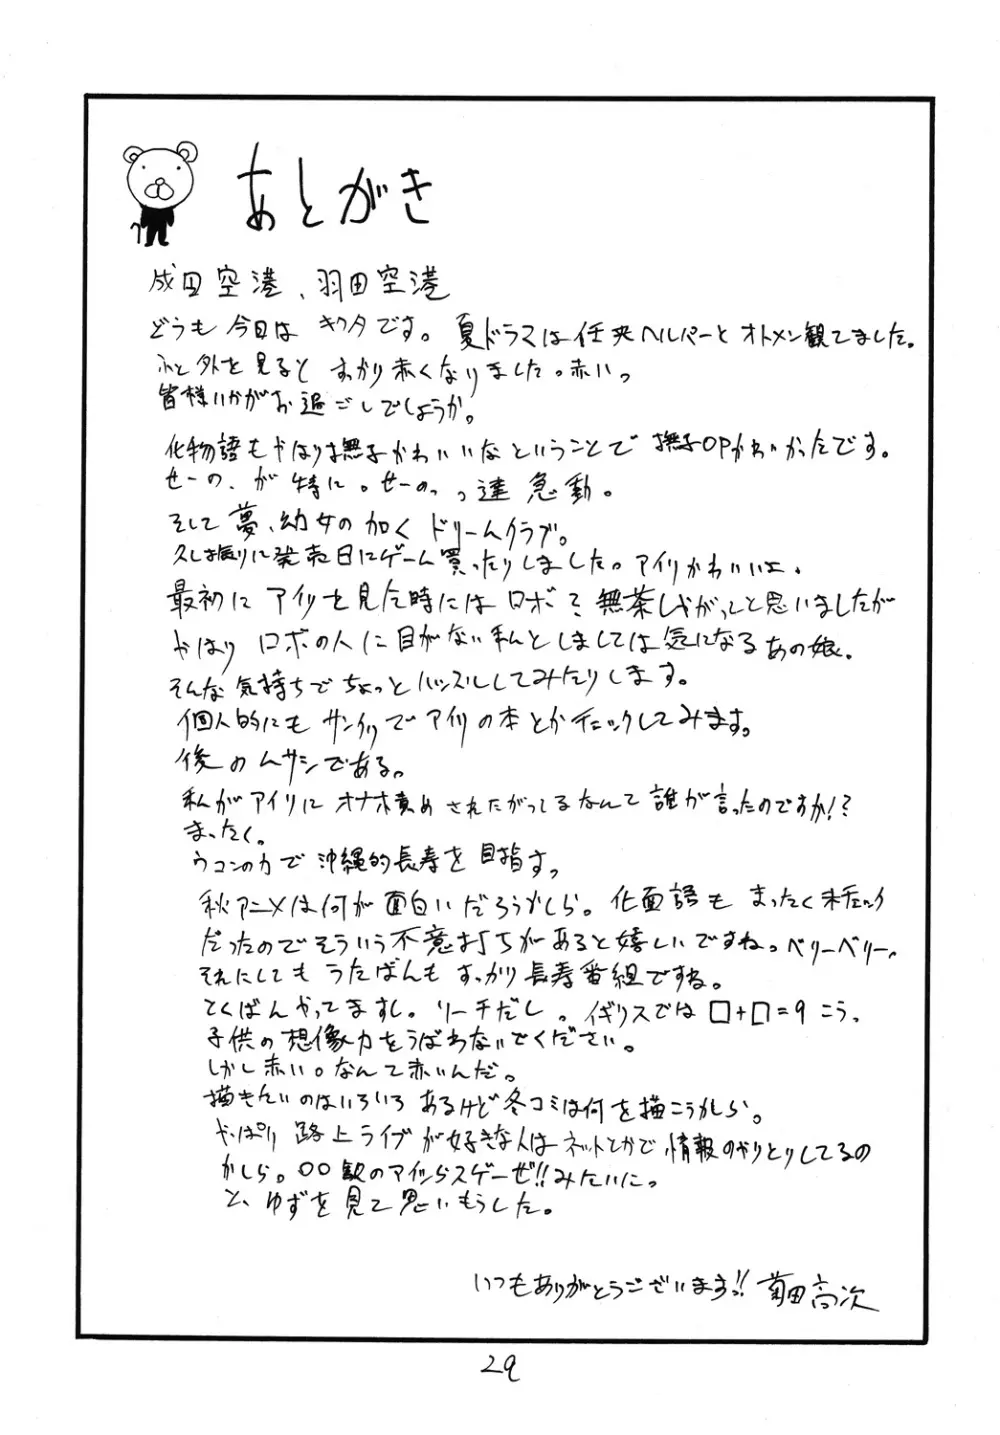 あとがき
成田空港、羽田空港
どうも今日は キクタです。夏ドラマは任侠ヘルパーとオトメン観てました。
ふと外を見ると すっかり赤くなりました。赤いっ
皆様いかがお過ごしでしょうか。
化物語もやはり撫子かわいいなということで 撫子OPかわいかったです。
せーの、が特に。せーのっ
そして夢、幼女の如く ドリームクラブ。
久し振りに発売日にゲーム買ったりしました。アイリかわいいよ、
最初に アイリを見た時には ロボて 無茶しやがってと思いましたが
やはり ロボの人に目がない私としましては気になるあの娘、
そんな気持ちでちょっとハッスルしてみたりします。
個人的にも サンクリでアイリの本とかチェックしてみます。
後のムサシである。
私がアイリに オナホ責めされたがってるなんて 誰が言ったのですか!?
まったく。
ウコンの力で 沖縄的長寿を目指す。
秋アニメは何が面白いだろうかしら。化物語も まったく未チェック
だったのでそういう不意打ちがあると嬉しいですねっベリーベリー、
それにしても うたばんも すっかり長寿番組ですね。
とくばんやってますし。リーチだし。イギリスでは □+□=9 こう、
子供の想像力をうばわないでください。
しかし赤い。なんて赤いんだ。
描きたいのはいろいろ あるけど冬コミは何を描こうかしら。
やっぱり 路上ライブが好きな人は ネットとかで情報のやりとりしてるの
かしら。○○駅のアイツらスゲーぜ!!みたいにっ
と、ゆずを見て思いもうした。
いつもありがとうございますっ!! 菊田高次
29